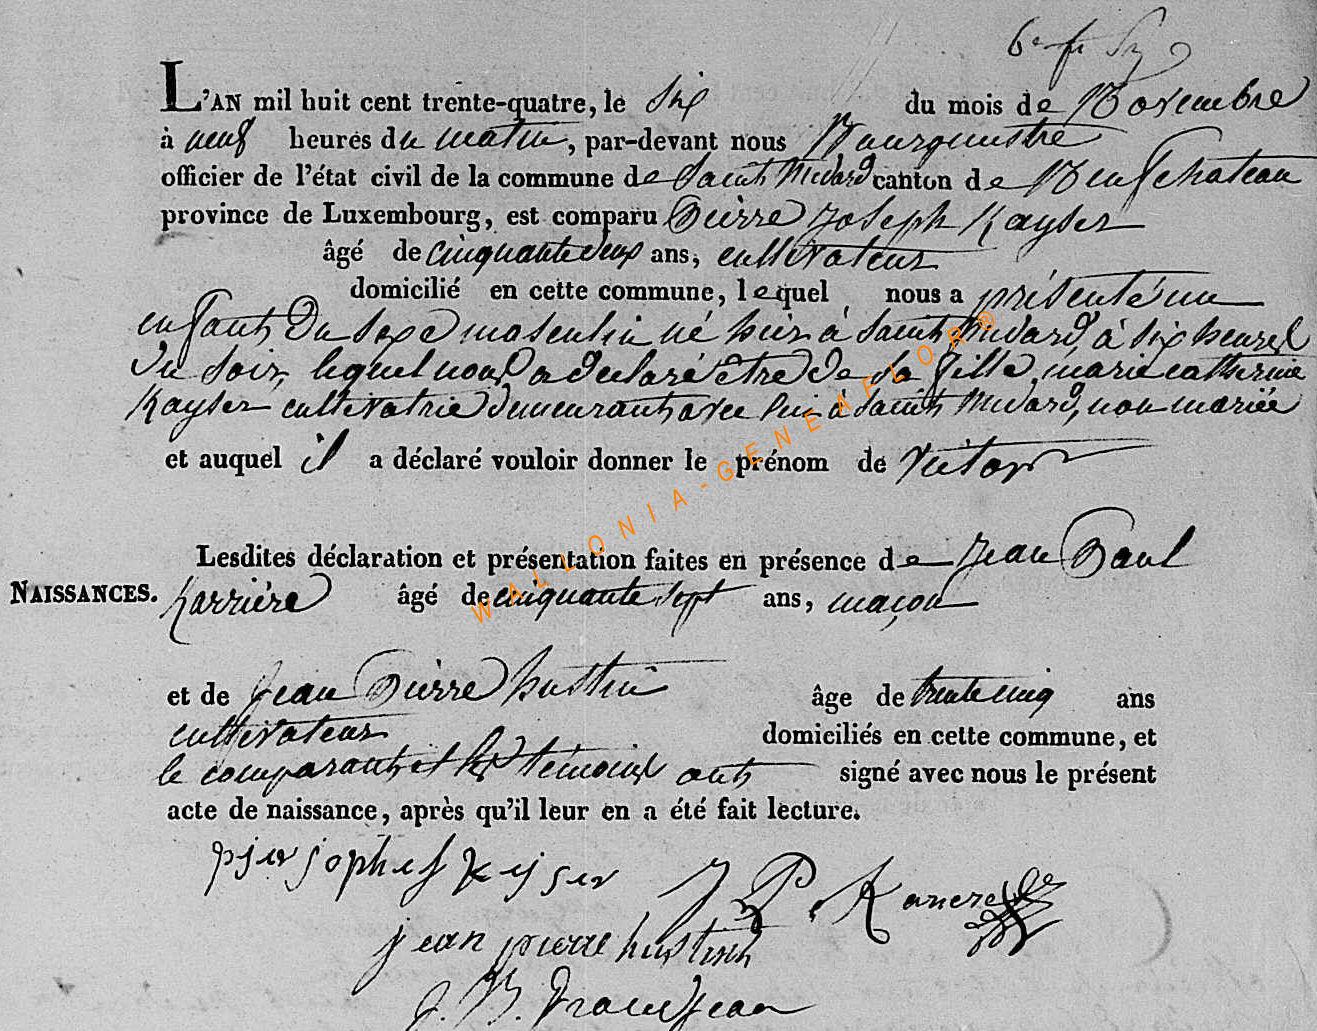 6e
L'AN mil huit cent trente-quatre, le six du mois de Novembre
à neuf heures du matin, par-devant nous Bourguestre
officier de l'état civil de la commune de Saint Médard canton de Neufchateau
province de Luxembourg, est comparu Pierre Joseph Kayser
âgé de cinquante deux ans, cultivateur
domicilié en cette commune, lequel nous a présenté un
enfant du sexe masculin né hier à Saint Médard, à six heures
du soir, lequel nous a déclaré être de sa fille, marie catherine
Kayser cultivatrice demeurant avec lui à Saint Médard, non mariée
et auquel il a déclaré vouloir donner le prénom de Victor
Lesdites déclaration et présentation faites en présence de Jean Paul
NAISSANCES. Karrière âgé de cinquante sept ans, maçon
et de Jean Pierre hustin âge de trente cinq ans
cultivateur domiciliés en cette commune, et
le comparant et les témoins ont signé avec nous le présent
acte de naissance, après qu'il leur en a été fait lecture.
pier jophes Keyser J P. Karier
jean pierre hustin
J. B. Grandjean
WALLONIA-GENEAFLOR®